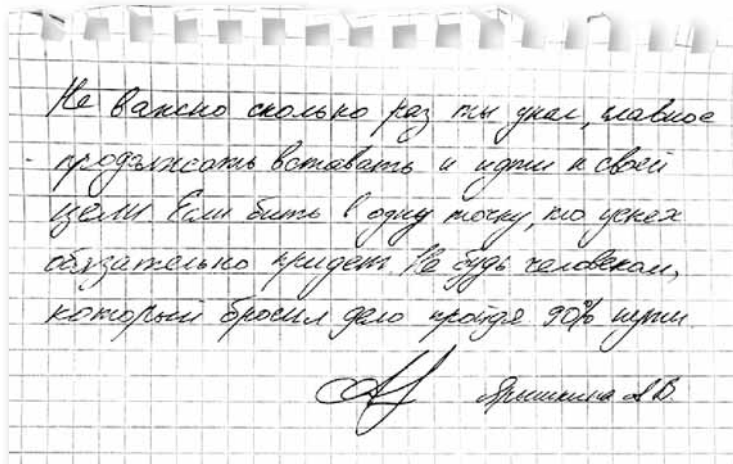 Не важно сколько раз ты упал, главное
продолжать вставать и идти к своей
цели Если бить в одну точку, то успех
обязательно придет. Не будь человеком,
который бросил дело пройдя 90% пути.
А.В.